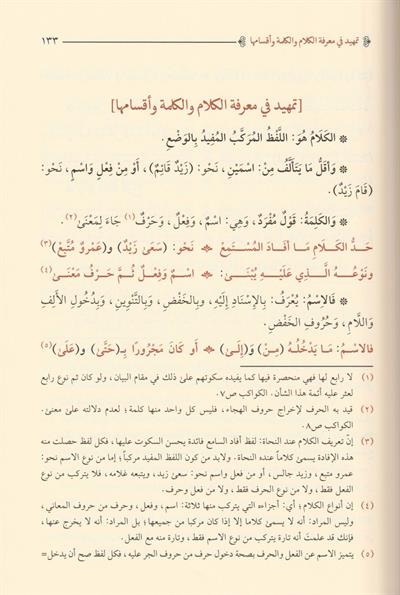 تمهيد في معرفة الكلام والكلمة وأقسامها ١٣٣
[تمهيد في معرفة الكلام والكلمة وأقسامها]
* الكَلَامُ هُوَ: اللَّفْظُ المُرَكَّبُ المُفِيدُ بِالوَضْعِ.
* وَأَقَلُّ مَا يَتَأَلَّفُ مِنْ: اسْمَيْنِ، نَحْوُ: (زَيْدٌ قَائِمٌ)، أَوْ مِنْ فِعْلٍ وَاسْمٍ، نَحْوُ:
(قَامَ زَيْدٌ).
* وَالكَلِمَةُ: قَوْلٌ مُفْرَدٌ، وَهِيَ: اسْمٌ، وَفِعْلٌ، وَحَرْفٌ(١) جَاءَ لِمَعْنًى(٢).
حَدُّ الكَلَامِ مَا أَفَادَ المُسْتَمِعْ نَحْوُ: (سَعَىٰ زَيْدٌ) و(عَمرٌو مُتَّبِعْ)(٣)
وَنَوْعُهُ الَّذِي عَلَيْهِ يُبْنَىٰ: اسْمٌ وَفِعْلٌ ثُمَّ حَرْفُ مَعْنَىٰ(٤)
* فَالاِسْمُ: يُعْرَفُ: بِالإِسْنَادِ إِلَيْهِ، وبِالخَفْضِ، وَبِالتَّنْوِينِ، وَبِدُخُولِ الأَلِفِ
وَاللَّامِ، وَحُرُوفِ الخَفْضِ.
فالاِسْمُ: مَا يَدْخُلُهُ (مِنْ) وَ(إِلَىٰ) أَوْ كَانَ مَجْرُورًا بِـ(حَتَّىٰ) وَ(عَلَىٰ)(٥)
(١) لا رابع لها فهي منحصرة فيها كما يفيده سكوتهم علىٰ ذلك في مقام البيان، ولو كان ثم نوع رابع
لعثر عليه أئمة هذا الشأن. الكواكب ص٧.
(٢) قيد به الحرف لإخراج حروف الهجاء، فليس كل واحد منها كلمة؛ لعدم دلالته علىٰ معنىٰ.
الكواكب ص٨.
(٣) إنّ تعريف الكلام عند النحاة: لفظ أفاد السامع فائدة يحسن السكوت عليها، فكل لفظ حصلت منه
هذه الإفادة يسمىٰ كلاماً عند النحاة. ولابد من كون اللفظ المفيد مركباً؛ إما من نوع الاسم نحو:
عمرو متبع، وزيد جالس، أو من فعل واسم نحو: سعىٰ زيد، ويتبعه غلامه، فلا يتركب من نوع
الفعل فقط، ولا من نوع الحرف فقط، ولا من فعل وحرف.
(٤) إن أنواع الكلام، أي: أجزاءه التي يتركب منها ثلاثة: اسم، وفعل، وحرف من حروف المعاني،
وليس المراد: أنه لا يسمىٰ كلاما إلا إذا كان مركبا من جميعها؛ بل المراد: أنه لا يخرج عنها،
فإنك قد علمتَ أنه تارة يتركب من نوع الاسم فقط، وتارة منه مع الفعل.
(٥) يتميز الاسم عن الفعل والحرف بصحة دخول حرف من حروف الجر عليه، فكل لفظ صح أن يدخل=